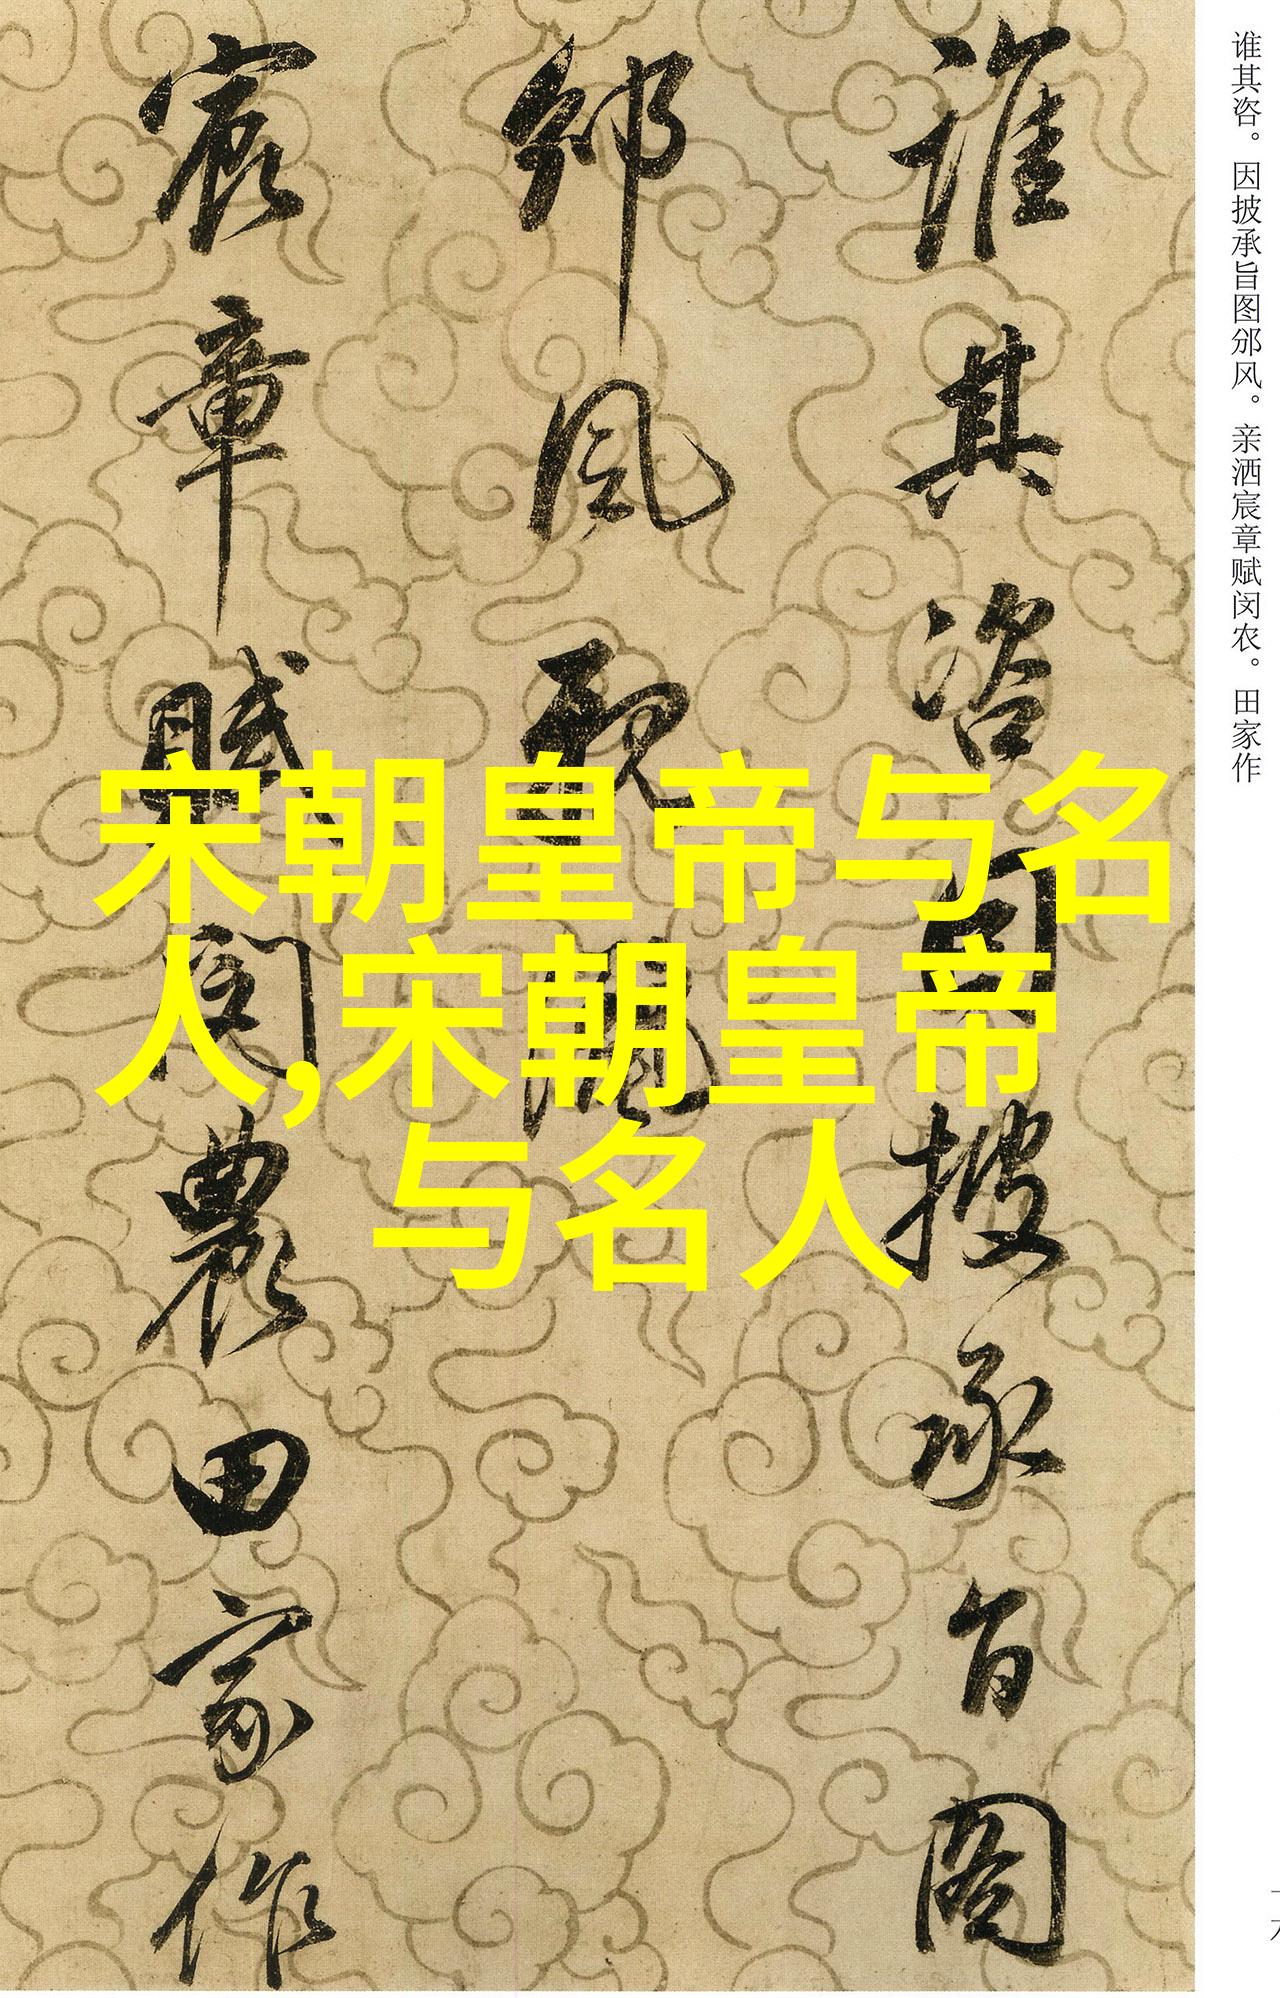 谁其咨。因披承旨图邠风。亲洒宸章赋闵农。田家作
誰其咨因披承旨圖
邠風親灑
宸章賦閔農田家作
宋朝皇帝与名
人,宋朝皇帝
与名人